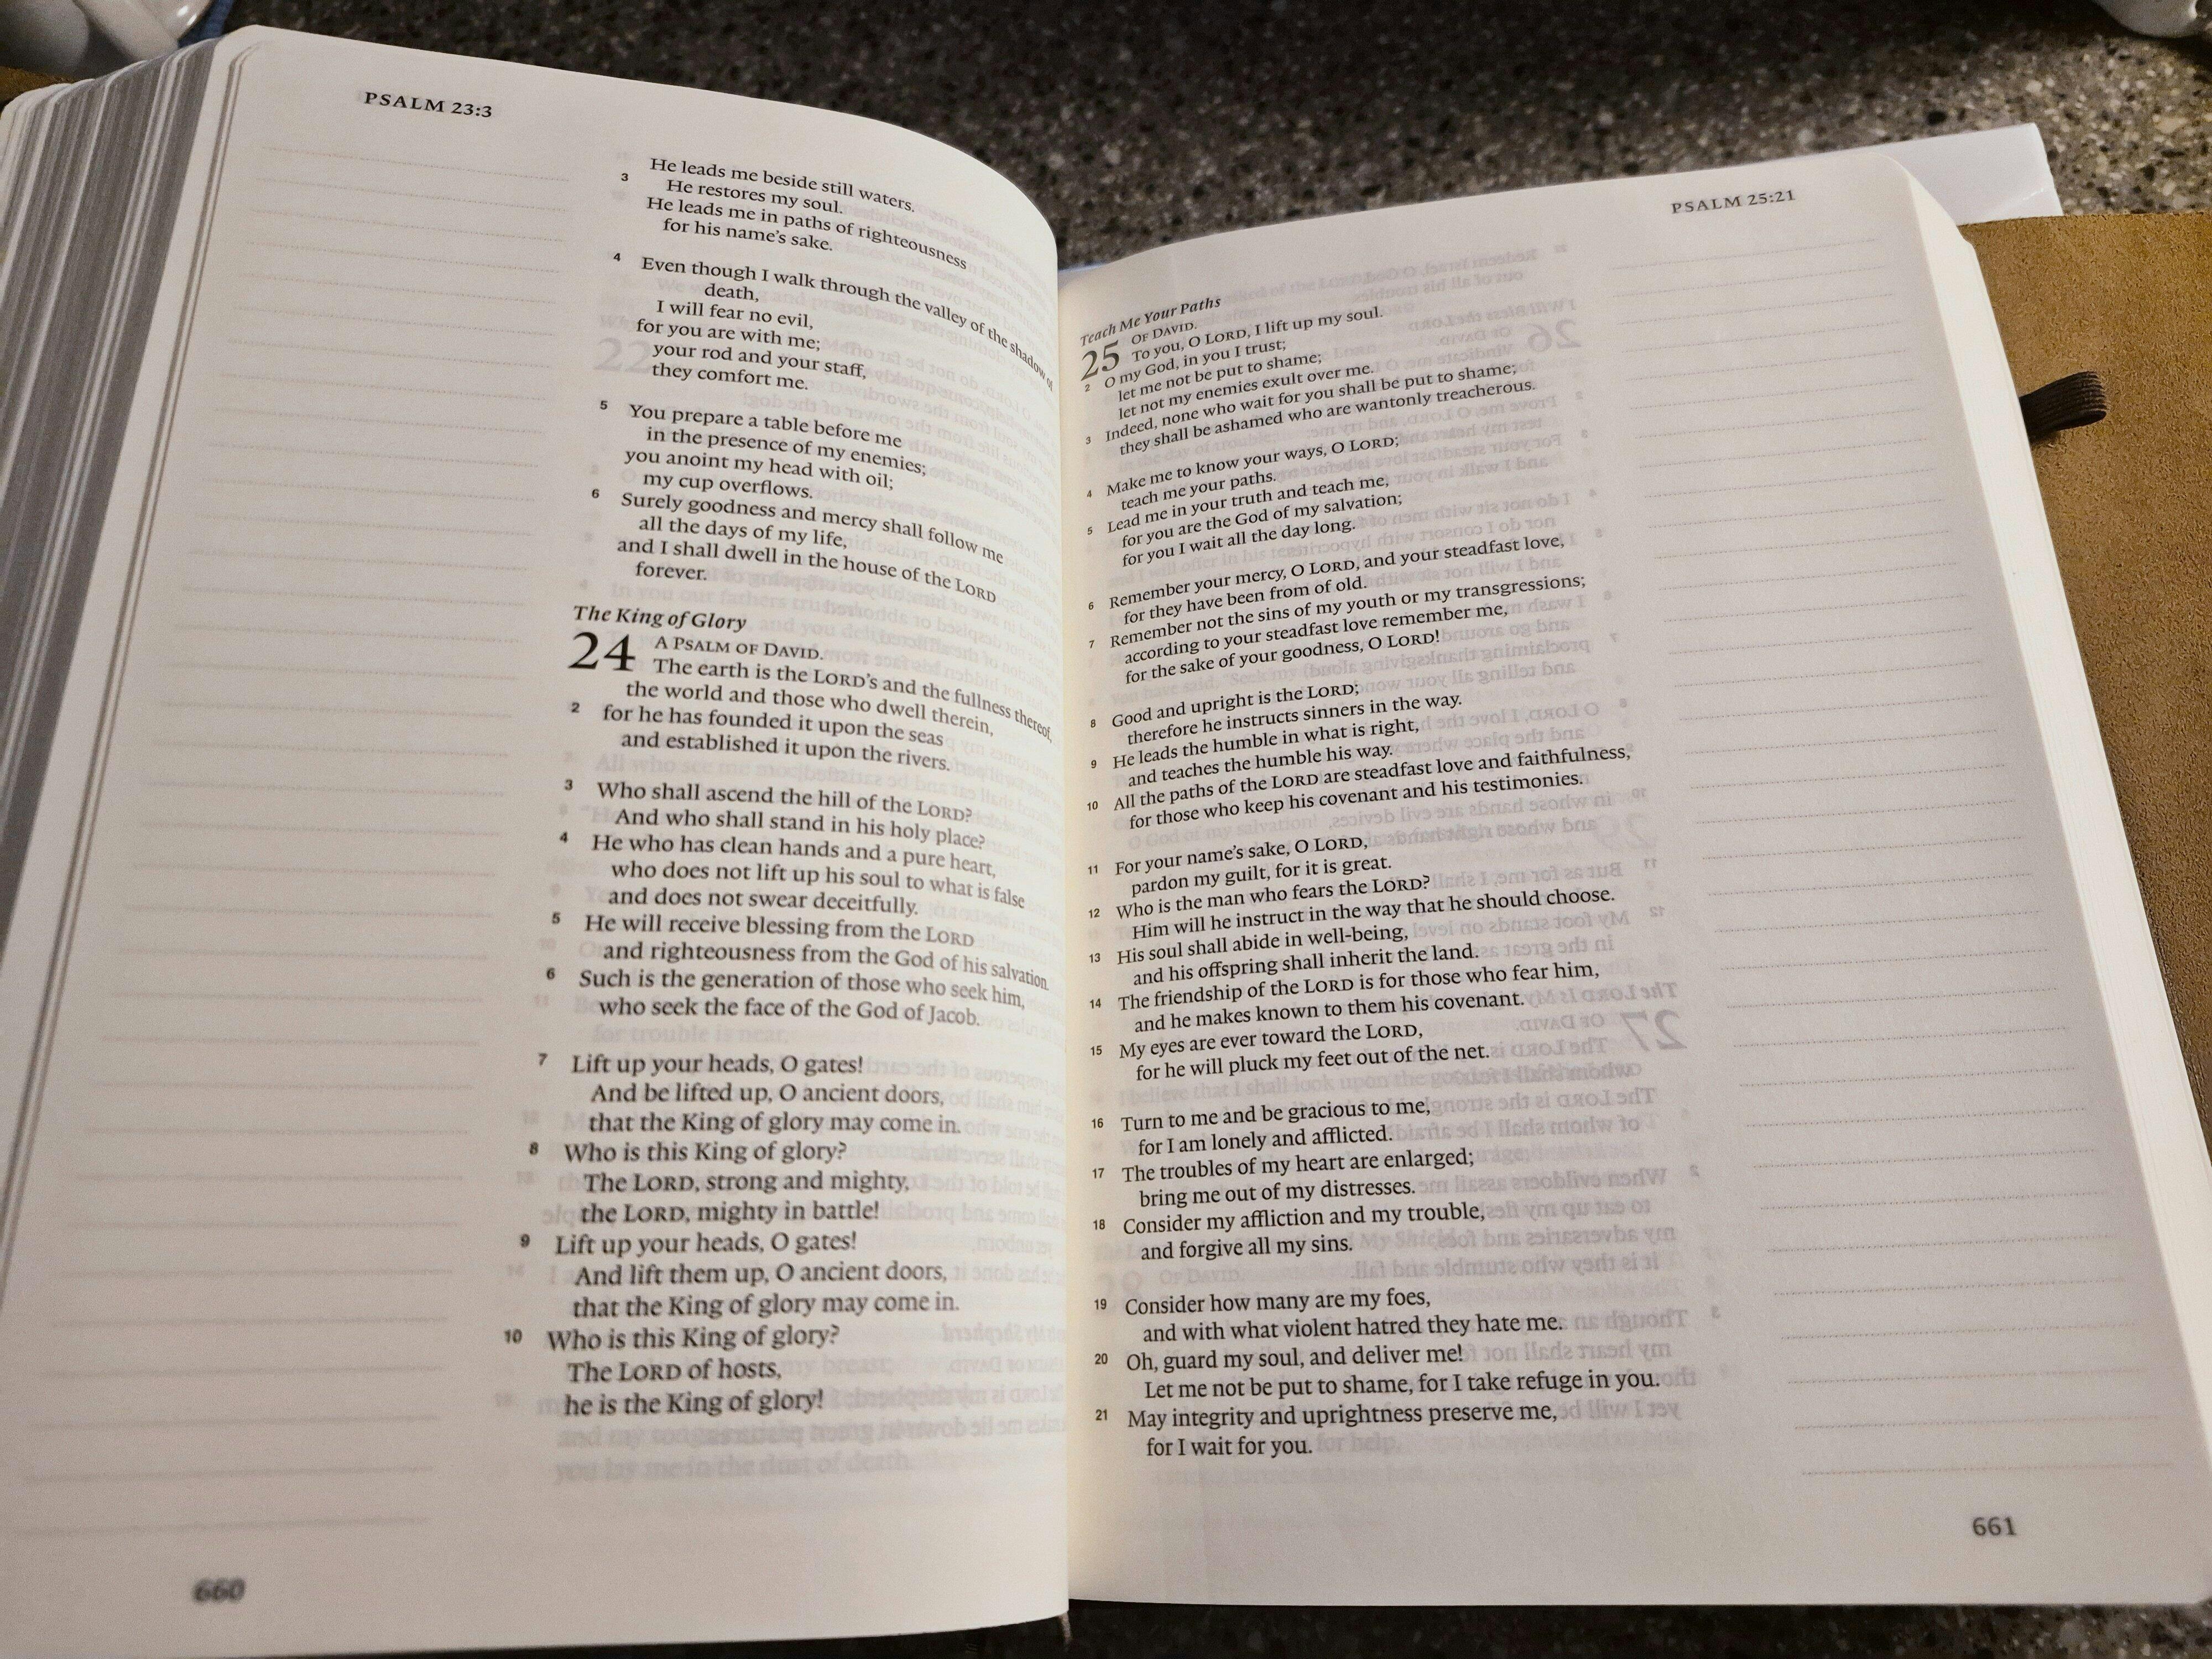 PSALM 23:3
He leads me beside still waters.
3 He restores my soul.
He leads me in paths of righteousness
for his name's sake.
4 Even though I walk through the valley of the shadow of
death,
I will fear no evil,
for you are with me;
your rod and your staff,
they comfort me.
5 You prepare a table before me
in the presence of my enemies;
you anoint my head with oil;
my cup overflows.
6 Surely goodness and mercy shall follow me
all the days of my life,
and I shall dwell in the house of the LORD
forever.
The King of Glory
24 A PSALM OF DAVID.
The earth is the LORD's and the fullness thereof,
the world and those who dwell therein,
2 for he has founded it upon the seas
and established it upon the rivers.
3 Who shall ascend the hill of the LORD?
And who shall stand in his holy place?
4 He who has clean hands and a pure heart,
who does not lift up his soul to what is false
and does not swear deceitfully.
5 He will receive blessing from the LORD
and righteousness from the God of his salvation.
6 Such is the generation of those who seek him,
who seek the face of the God of Jacob.
7 Lift up your heads, O gates!
And be lifted up, O ancient doors,
that the King of glory may come in.
8 Who is this King of glory?
The LORD, strong and mighty,
the LORD, mighty in battle!
9 Lift up your heads, O gates!
And lift them up, O ancient doors,
that the King of glory may come in.
10 Who is this King of glory?
The LORD of hosts,
he is the King of glory!
660
PSALM 25:21
Teach Me Your Paths
25 OF DAVID.
To you, O LORD, I lift up my soul.
2 O my God, in you I trust;
let me not be put to shame;
let not my enemies exult over me.
3 Indeed, none who wait for you shall be put to shame;
they shall be ashamed who are wantonly treacherous.
4 Make me to know your ways, O LORD;
teach me your paths.
5 Lead me in your truth and teach me,
for you are the God of my salvation;
for you I wait all the day long.
6 Remember your mercy, O LORD, and your steadfast love,
for they have been from of old.
7 Remember not the sins of my youth or my transgressions;
according to your steadfast love remember me,
for the sake of your goodness, O LORD!
8 Good and upright is the LORD;
therefore he instructs sinners in the way.
9 He leads the humble in what is right,
and teaches the humble his way.
10 All the paths of the LORD are steadfast love and faithfulness,
for those who keep his covenant and his testimonies.
11 For your name's sake, O LORD,
pardon my guilt, for it is great.
12 Who is the man who fears the LORD?
Him will he instruct in the way that he should choose.
13 His soul shall abide in well-being,
and his offspring shall inherit the land.
14 The friendship of the LORD is for those who fear him,
and he makes known to them his covenant.
15 My eyes are ever toward the LORD,
for he will pluck my feet out of the net.
16 Turn to me and be gracious to me,
for I am lonely and afflicted.
17 The troubles of my heart are enlarged;
bring me out of my distresses.
18 Consider my affliction and my trouble,
and forgive all my sins.
19 Consider how many are my foes,
and with what violent hatred they hate me.
20 Oh, guard my soul, and deliver me!
Let me not be put to shame, for I take refuge in you.
21 May integrity and uprightness preserve me,
for I wait for you.
661